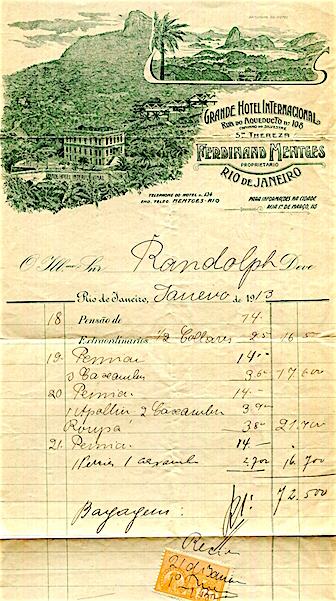 GRANDE HOTEL INTERNACIONAL
RUA DO AQUEDUCTO Nº 108
CAMINHO DO SILVESTRE
Sta THEREZA
FERDINAND MENTGES
PROPRIETARIO
RIO DE JANEIRO
TELEPHONE DO HOTEL N. 134
END. TELEG. MENTGES-RIO
PARA INFORMAÇÕES NA CIDADE
RUA 1º DE MARÇO, 115
O Illmo Snr Randolph Deve
Rio de Janeiro, Janeiro de 1913
18 Pensão de 14.-
Extraordinarios 1/2 Collares 2.5 16.500
19 Pensão 14.--
Caxambu 3.6 17.600
20 Pensão 14.--
1 Apollin 2 Caxambu
Roupa 21.700
21. Pensão 14.--
1 Caxambu 2.700 16.700
72.500
Bagagem:
21 de Janeiro